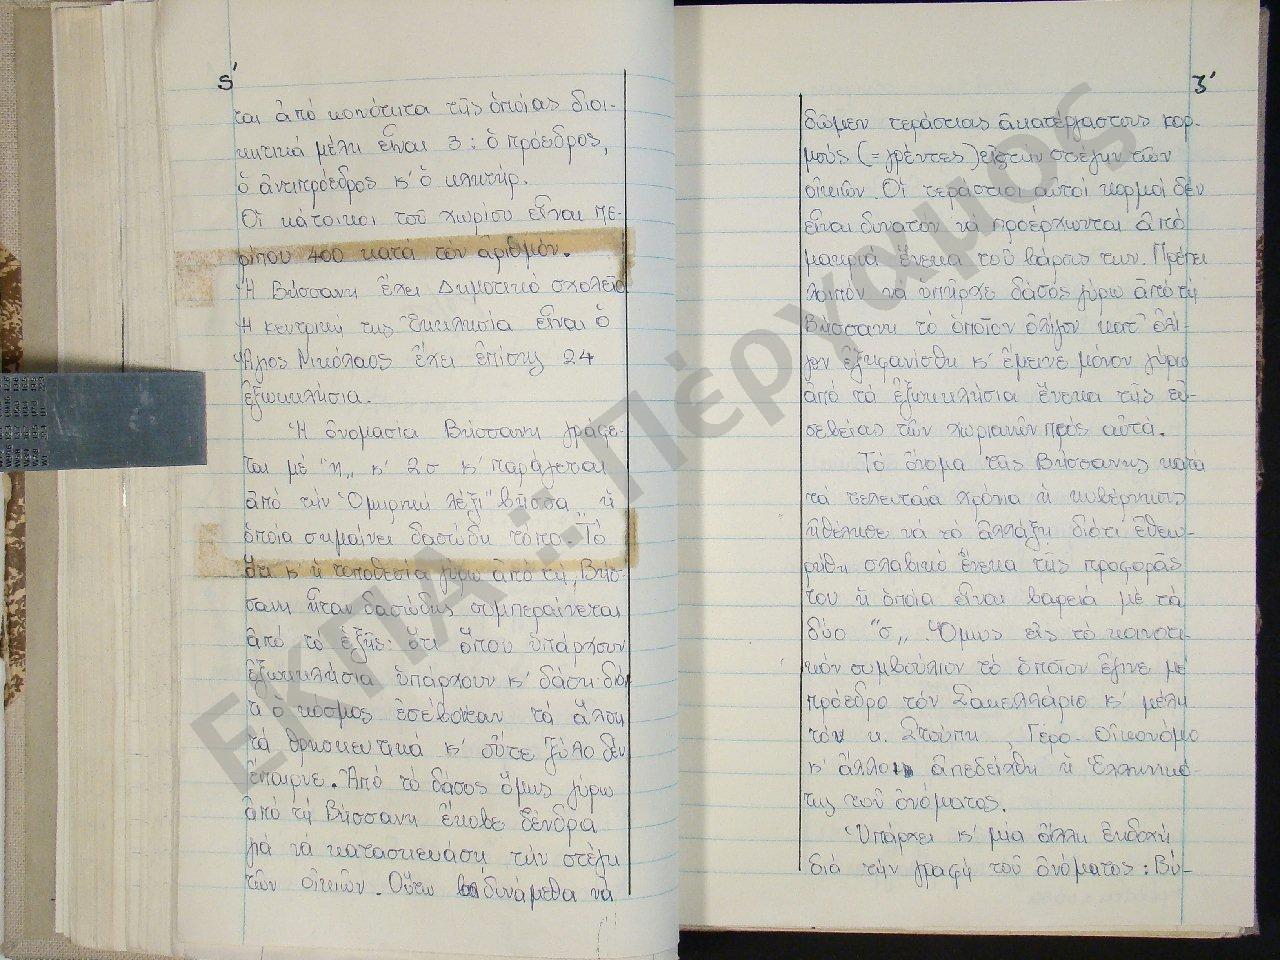 ς'
ται ἀπό κοινότητα τῆς ὁποίας διοι-
κητικά μέλη εἶναι 3: ὁ πρόεδρος,
ὁ ἀντιπρόεδρος κ' ὁ κλητήρ.
Οἱ κάτοικοι τοῦ χωρίου εἶναι πε-
ρίπου 400 κατά τόν ἀριθμόν.
Ἡ Βήσσανη ἔχει Δημοτικό σχολεῖο
Ἡ κεντρική της Ἐκκλησία εἶναι ὁ
Ἅγιος Νικόλαος ἔχει ἐπίσης 24
ἐξωκκλήσια.
Ἡ ὀνομασία Βήσσανη γράφε-
ται μέ "η„ κ' 2σ κ' παράγεται
ἀπό τήν Ὁμηρική λέξι "βῆσσα„ ἡ
ὁποία σημαίνει δασώδη τόπο. Τό
ὅτι κ' ἡ τοποθεσία γύρω ἀπό τή Βήσ-
σανη ἦταν δασώδης συμπεραίνεται
ἀπό τό ἑξῆς: ὅτι ὅπου ὑπάρχουν
ἐξωκκλήσια ὑπάρχουν κ' δάση διό
τι ὁ κόσμος ἐσέβοταν τά ἄλση
τά θρησκευτικά κ' οὔτε ξύλο δέν
ἔπαιρνε. Ἀπό τό δάσος ὅμως γύρω
ἀπό τή Βήσσανη ἔκοβε δένδρα
γιά νά κατασκευάση τήν στέγη
τῶν οἰκιῶν. Οὕτω δυνάμεθα νά
ζ'
δῶμεν τεράστιας ἀκατέργαστους κορ-
μούς (=γρέντες) εἰς τήν στέγην τῶν
οἰκιῶν. Οἱ τεράστιοι αὐτοί κορμοί δέν
εἶναι δυνατόν νά προέρχωνται ἀπό
μακριά ἕνεκα τοῦ βάρους των. Πρέπει
λοιπόν νά ὑπῆρχε δάσος γύρω ἀπό τή
Βήσσανη τό ὁποῖον ὀλίγον κατ' ὀλί-
γον ἐξηφανίσθη κ' ἔμεινε μόνον γύρω
ἀπό τά ἐξωκκλήσια ἕνεκα τῆς εὐ-
σεβείας τῶν χωριανῶν πρός αὐτά.
Τό ὄνομα τῆς Βήσσανης κατά
τά τελευταῖα χρόνια ἡ κυβέρνησις
ἠθέλησε νά τό ἀλλάξη διότι ἐθεω-
ρήθη σλαβικό ἕνεκα τῆς προφορᾶς
του ἡ ὁποία εἶναι βαρειά μέ τά
δύο "σ„. Ὅμως εἰς τό κοινοτι-
κόν συμβούλιον τό ὁποῖον ἔγινε μέ
πρόεδρο τόν Σακελλάριο κ' μέλη
τόν κ. Στούπη Γέρο-Οἰκονόμο
κ' ἄλλοι ἀπεδείχθη ἡ Ἑλληνικό-
της τοῦ ὀνόματος.
Ὑπάρχει κ' μία ἄλλη ἐκδοχή
διά τήν γραφή τοῦ ὀνόματος: Βύ-
ΕΚΠΑ :: Πέργαμος